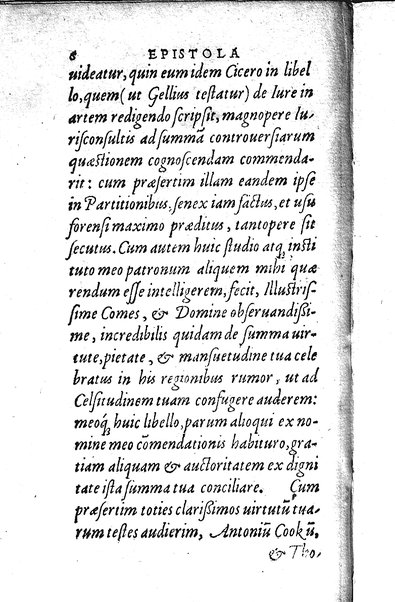 6 EPISTOLA
uideatur, quin eum idem Cicero in libel
lo, quem (ut Gellius testatur) de Iure in
artem redigendo scripsit, magnopere Iu-
risconsultis ad summã controuersiarum
quæstionem cognoscendam commenda-
rit: cum præsertim illam eandem ipse
in Partitionibus, senex iam factus, et usu
forensi maximo præditus, tantopere sit
secutus. Cum autem huic studio atq; insti
tuto meo patronum aliquem mihi quæ
rendum esse intelligerem, fecit, Illustriss
sime Comes, & Domine obseruandissi-
me, incredibilis quidam de summa uir-
tute, pietate, & mansuetudine tua cele
bratus in his regionibus rumor, ut ad
Celsitudinem tuam confugere auderem:
meoq; huic libello, parum alioqui ex no-
mine meo cõmendationis habituro, gra-
tiam aliquam & auctoritatem ex digni
tate ista summa tua conciliare. Cum
præsertim toties clarissimos uirtutũ tua-
rum testes audierim, Antoniũ Cookũ,
& Tho.